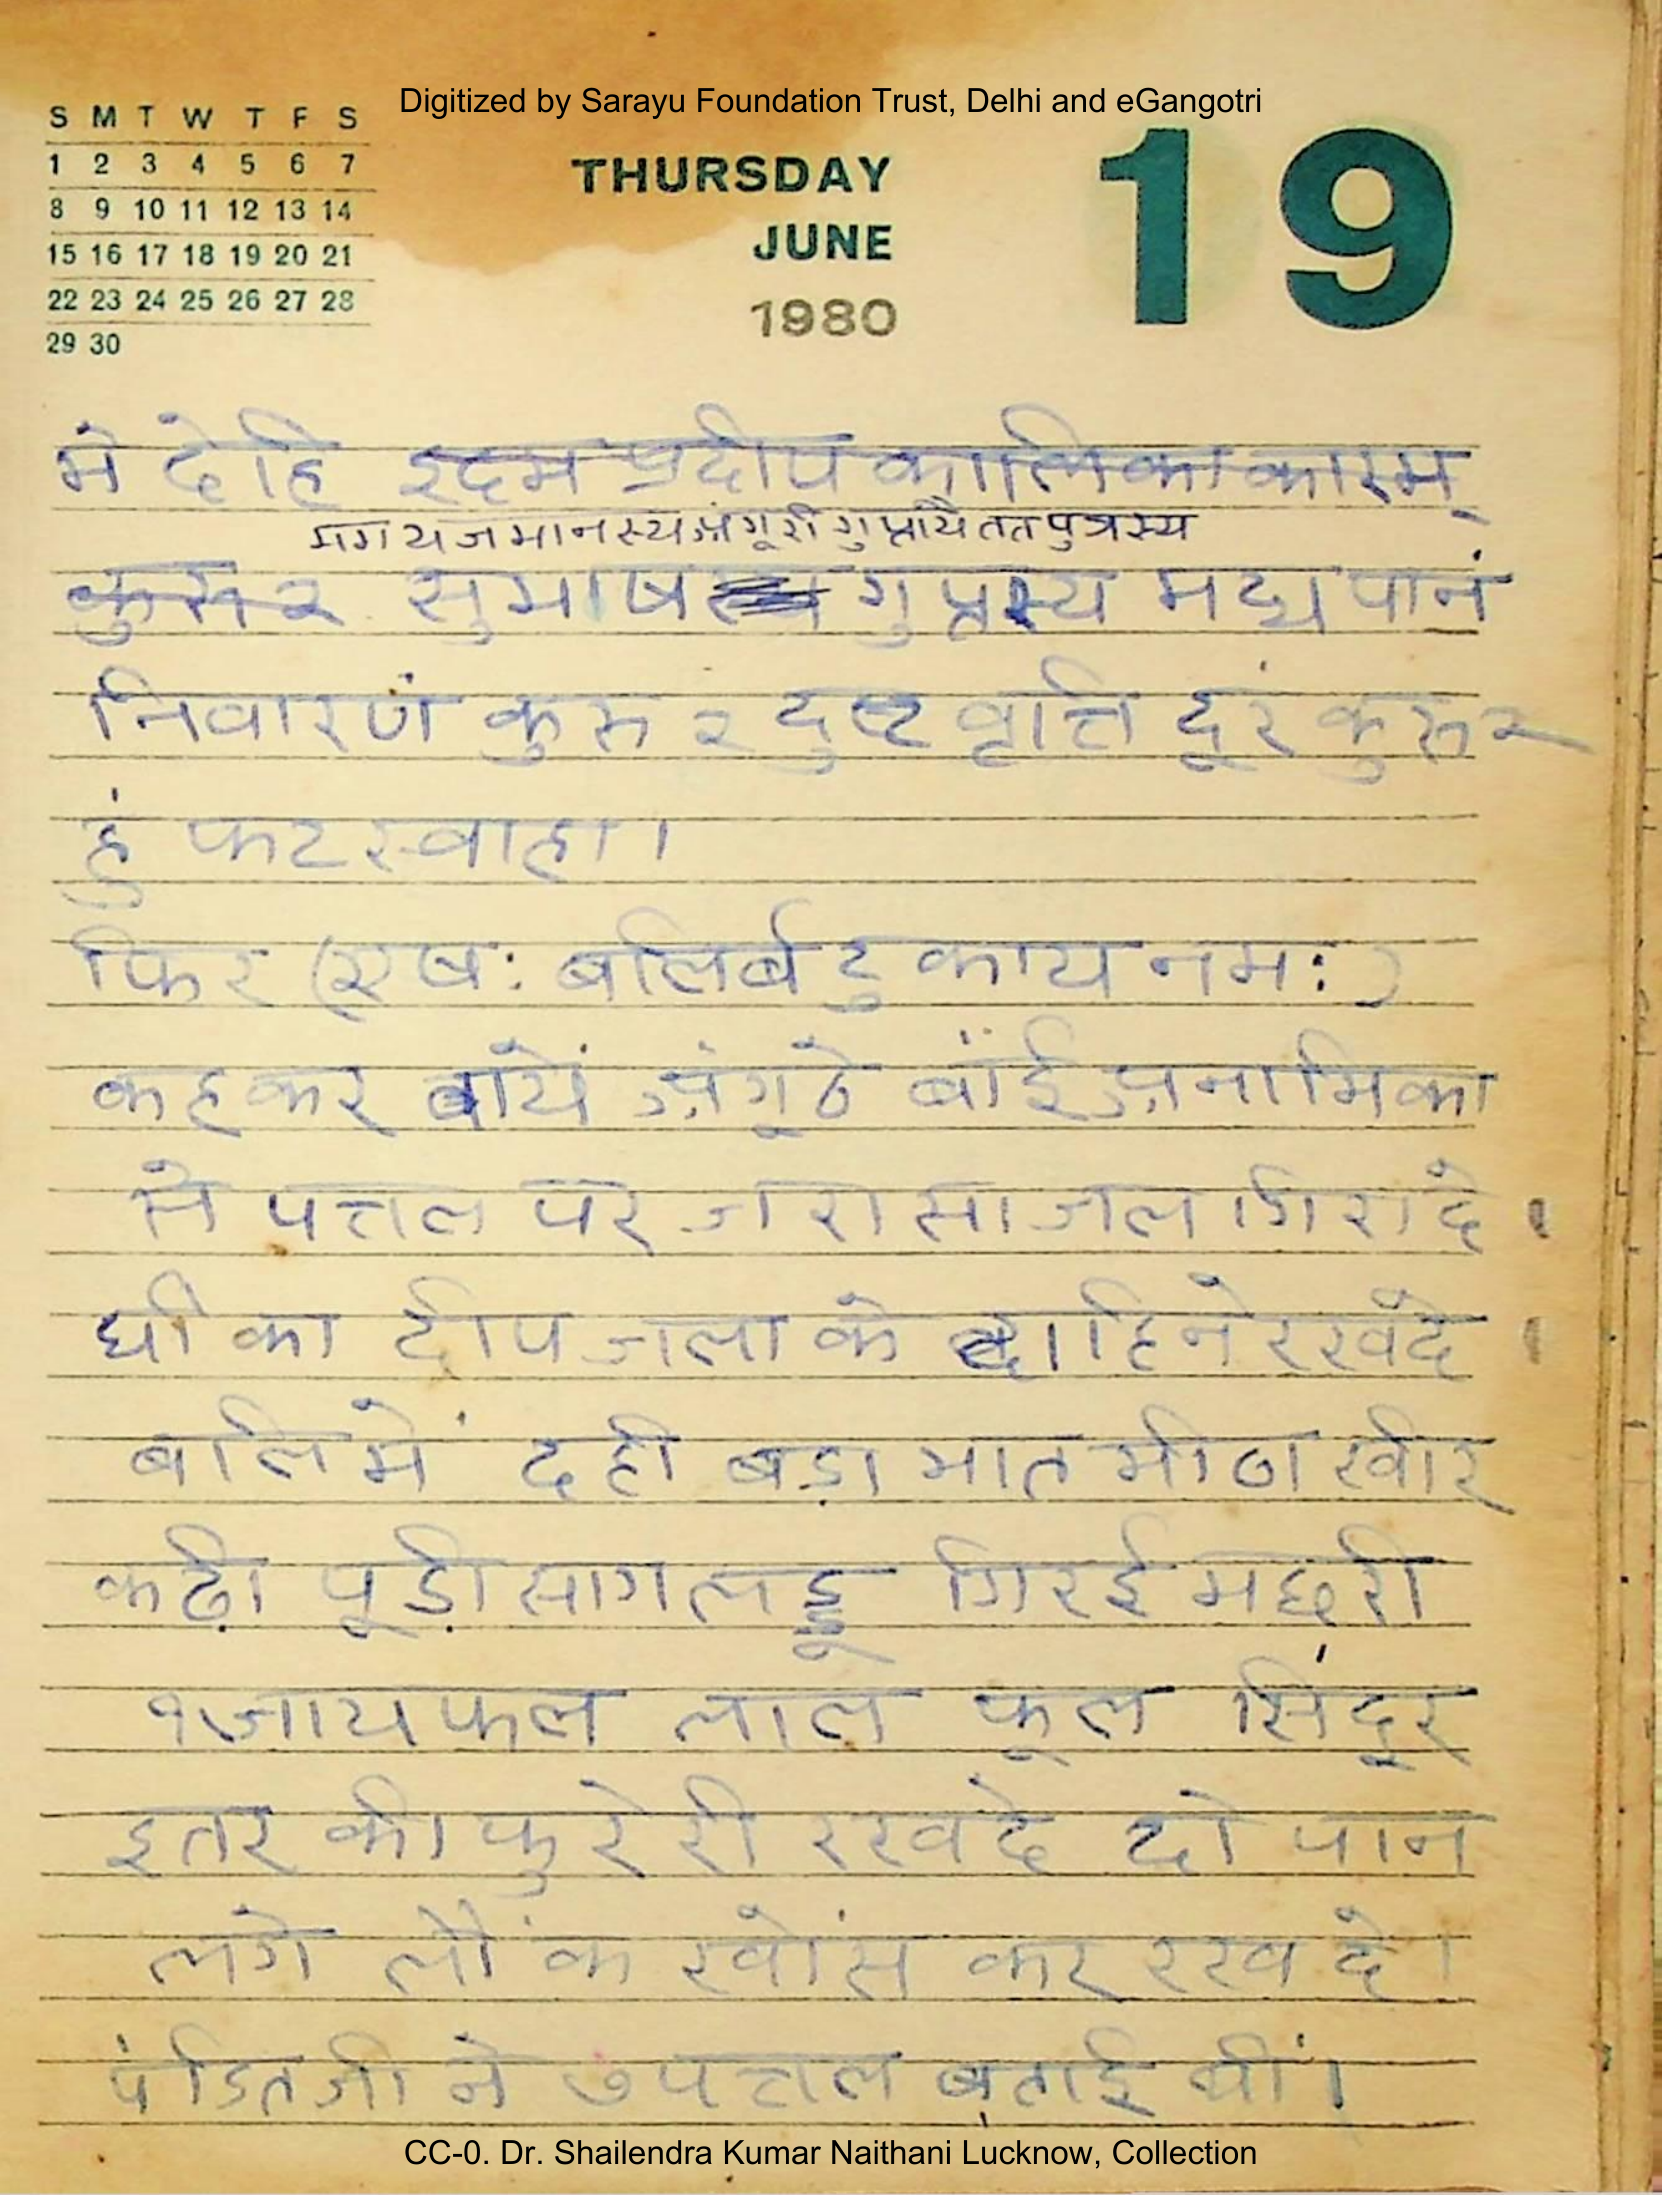 Digitized by Sarayu Foundation Trust, Delhi and eGangotri
S M T W T F S
1 2 3 4 5 6 7
8 9 10 11 12 13 14
15 16 17 18 19 20 21
22 23 24 25 26 27 28
29 30
THURSDAY
JUNE
1980
19
मे देहि इदम प्रदीप कालिका कारम्
मम यजमानस्य अंगूरी गुप्तायै तत पुत्रस्य
कुरु २ सुभाष गुप्तस्य मद्य पानं
निवारणं कुरु २ दुष्ट वृत्ति दूरं कुरु २
हुं फट स्वाहा।
फिर (एष: बलिर्बटुकाय नम:)
कहकर बायें अंगूठे बाँई अनामिका
से पत्तल पर जरा सा जल गिरा दे।
घी का दीप जला के दाहिने रख दे।
बलि में दही बड़ा भात मीठा खीर
कढ़ी पूड़ी साग लड्डू गिरई मछरी
१ जायफल लाल फूल सिंदूर
इतर की फुरेरी रख दे दो पान
लगे लौंक खोंस कर रख दे।
पंडित जी ने ७ पत्तल बताई थीं।
CC-0. Dr. Shailendra Kumar Naithani Lucknow, Collection